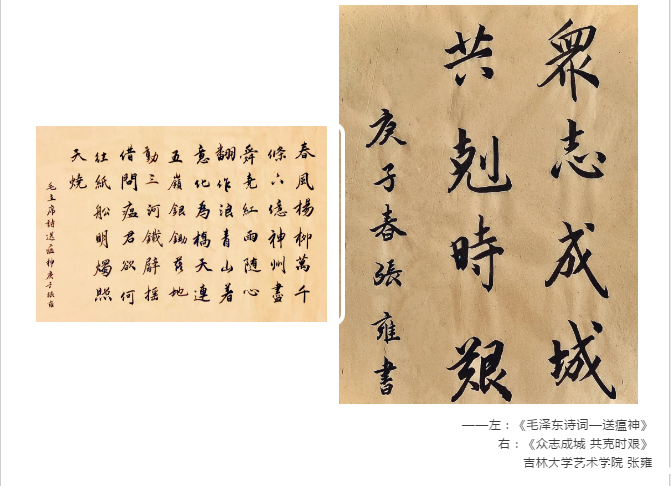 春風楊柳萬千
條六億神州盡
舜堯紅雨隨心
翻作浪青山着
意化為橋天連
五嶺銀鋤落地
動三河鐵臂摇
借問瘟君欲何
往紙船明燭照
天燒
毛主席詩送瘟神庚子張雍
衆志成城
共剋時艱
庚子春張雍書
——左：《毛泽东诗词—送瘟神》
右：《众志成城 共克时艰》
吉林大学艺术学院 张雍